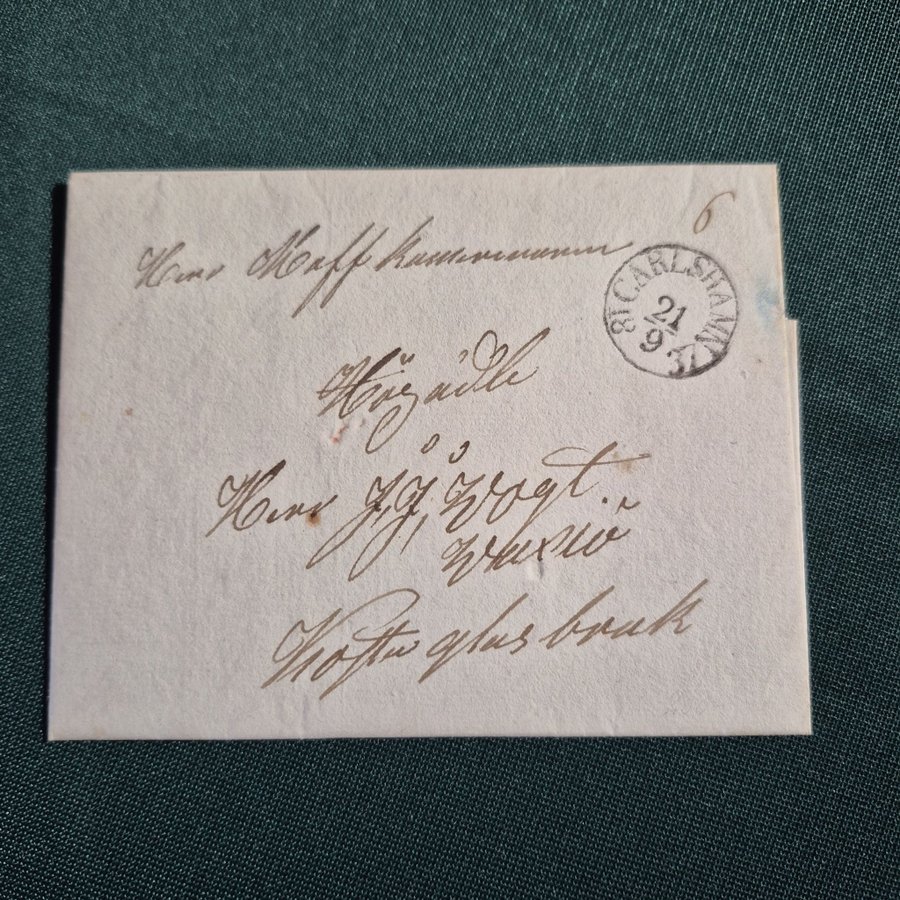 6
Herr Hoff kamereraren
18 CARLSHAMN 37
21
9
Högädle
Herr J, J, Vogt.
Wexiö
Kosta glas bruk